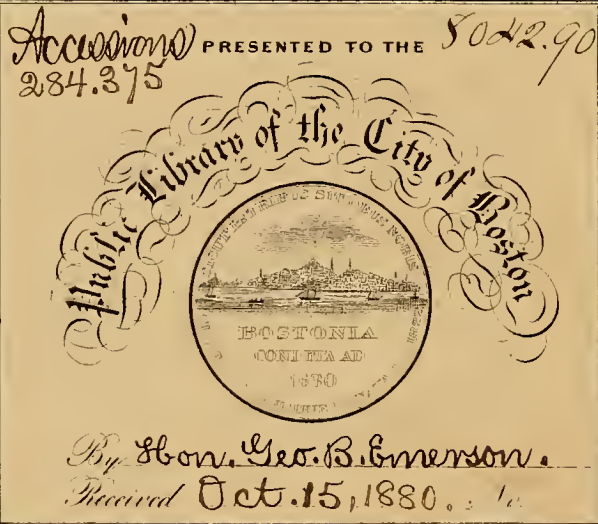 Accessions PRESENTED TO THE 5042.90
284.375
Public Library of the City of Boston
SICUT PATRIBUS SIT DEUS NOBIS
BOSTONIA
CONDITA AD
1630
By Hon. Geo. B. Emerson.
Received Oct. 15, 1880.